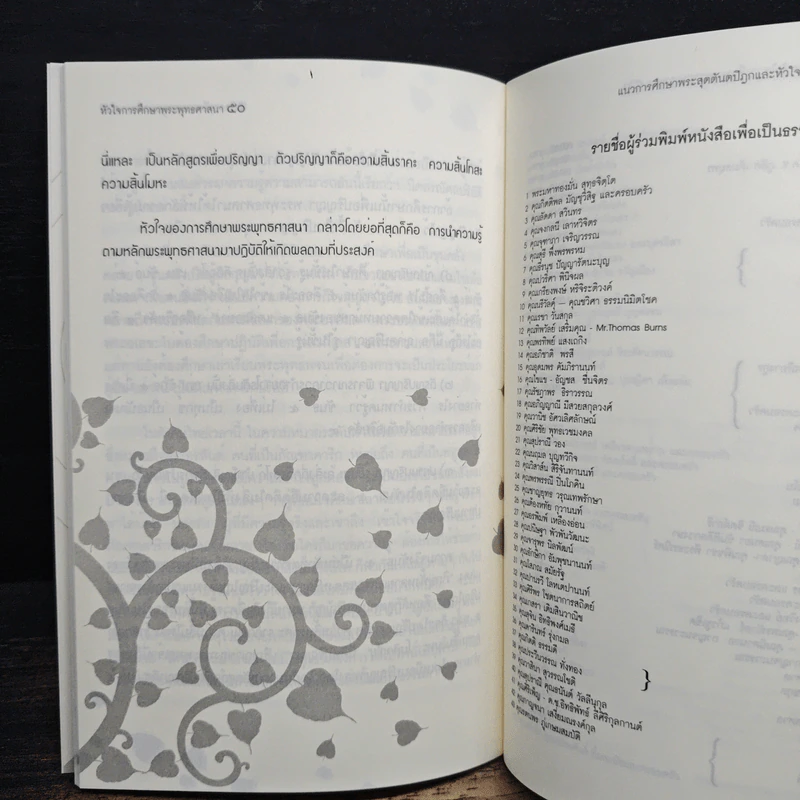 หัวใจการศึกษาพระพุทธศาสนา ๕๐
นี่แหละ เป็นหลักสูตรเพื่อปริญญา ตัวปริญญาก็คือความสิ้นราคะ ความสิ้นโทสะ
ความสิ้นโมหะ
หัวใจของการศึกษาพระพุทธศาสนา กล่าวโดยย่อที่สุดก็คือ การนำความรู้
ตามหลักพระพุทธศาสนามาปฏิบัติให้เกิดผลตามที่ประสงค์
แนวการศึกษาพระสุตตันตปิฎกและหัวใจ
รายชื่อผู้ร่วมพิมพ์หนังสือเพื่อเป็นธรร
1 พระมหาทองมั่น สุทธจิตฺโต
2 คุณกิตติพล มัญชุวิสิฐ และครอบครัว
3 คุณลัดดา สวินทร
4 คุณจงกลนี เลาหวิจิตร
5 คุณจุฑาภา เจริญวรรณ
6 คุณสุรี พึ่งพรพรหม
7 คุณสิรนุช ปัญญารัตนะบุญ
8 คุณปาริตา พินิจผล
9 คุณเกรียงพงษ์ หริจิระติวงศ์
10 คุณวิสัลดุ์ – คุณชวิศา ธรรมนิมิตโชค
11 คุณเรขา วันสกุล
12 คุณทิพวัลย์ เสริมคุณ - Mr.Thomas Burns
13 คุณพรทิพย์ แสงเถกิง
14 คุณอภิชาติ พรสี
15 คุณอุดมพร คัมภิรานนท์
16 คุณไชแช - อัญชส ชื่นจิตร
17 คุณรัชฎาพร ธิราวรรณ
18 คุณอภิญญาณี มีสวยสกุลวงศ์
19 คุณวานิช อัศวเลิศลักษณ์
20 คุณศิริชัย พุทธเวชมงคล
21 คุณสุปราณี วอง
22 คุณนฤมล บุญทวีกิจ
23 คุณวิสาส์น สิริจันทานนท์
24 คุณพรพรรณี ปิ่นโภคิน
25 คุณชาญยุทธ วรุณเทพรักษา
26 คุณต้องหทัย กุวานนท์
27 คุณอรพิมพ์ เหลืองอ่อน
28 คุณปนิษฐา พัวพันวัฒนะ
29 คุณจารุพร นิลพัฒน์
30 คุณลักษิกา อัมพุชนานนท์
31 คุณโสภณ สมัยรัฐ
32 คุณปานรวี โลหเตปานนท์
33 คุณศิริพร โชตนาการสถิตย์
34 คุณเกสรา เติมสินวาณิช
35 คุณสุจิน อิทธิพงศ์เมธี
36 คุณดารินทร์ รุ่งกมล
37 คุณกิตติ ธรรมดี
38 คุณประวีนวรรณ ทั่งทอง
39 คุณวาสินา สุวรรณโชติ
40 คุณสุปราณี คุณอนันต์ วัลลีนุกูล
41 คุณศิริเพ็ญ - ด.ช.อิทธิพัทธ์ ลีศิริกุลกานต์
42 คุณกาญจนา เสงี่ยมณรงค์กุล
43